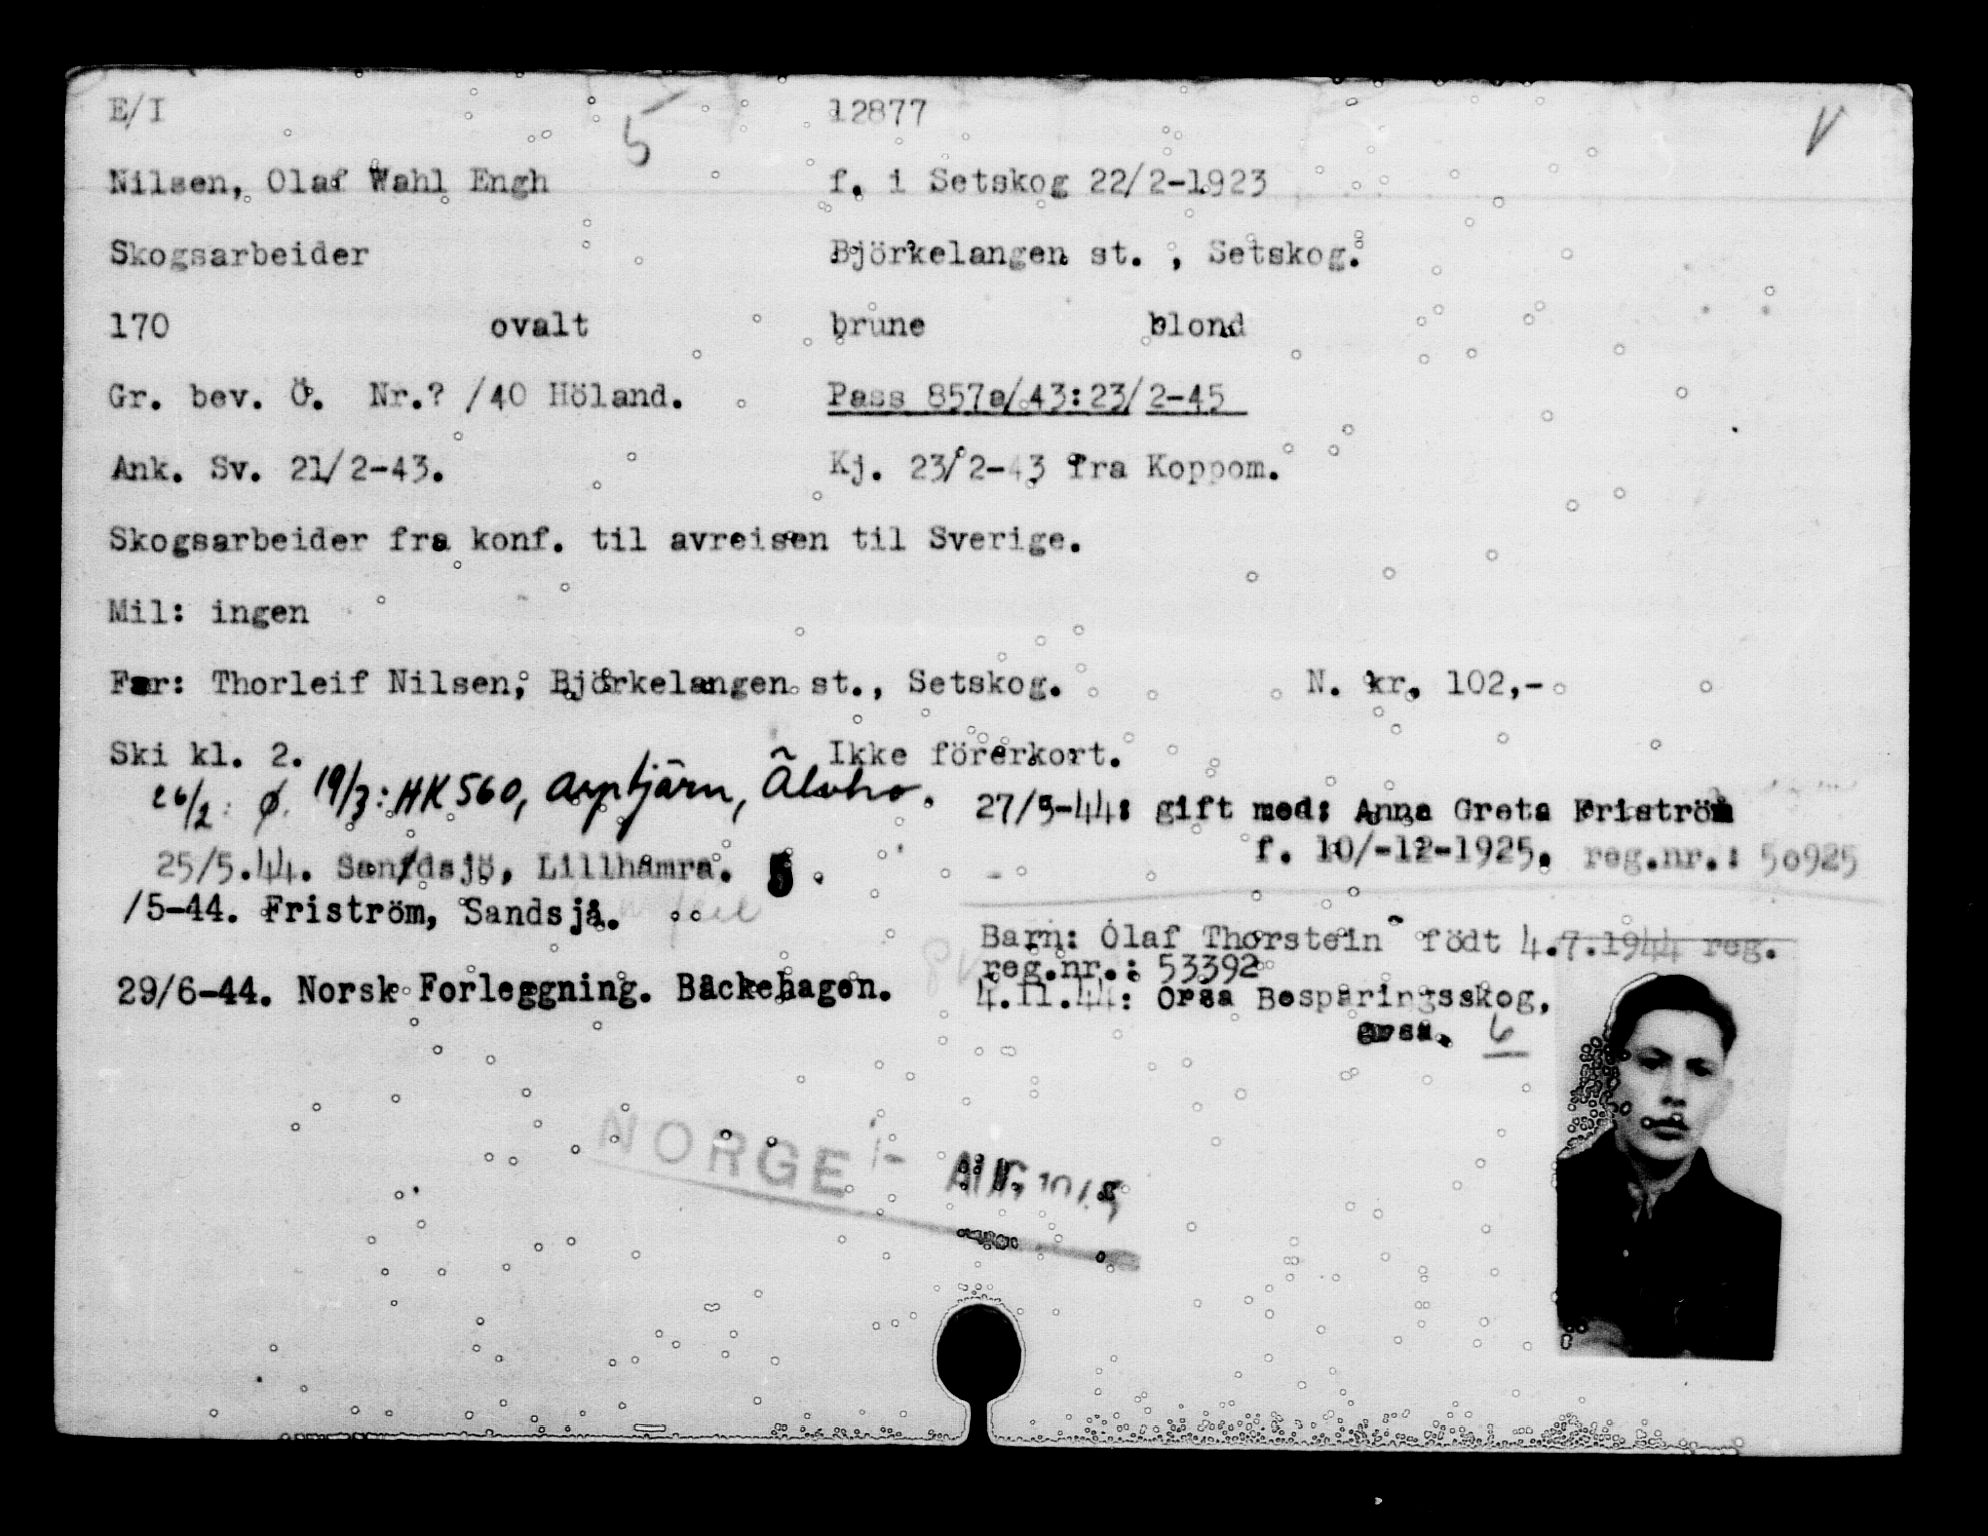 E/I 5 12877 V
Nilsen, Olaf Wahl Engh f. i Setskog 22/2-1923
Skogsarbeider Björkelangen st. , Setskog.
170 ovalt brune blond
Gr. bev. Ö. Nr.? /40 Höland. Pass 857a/43:23/2-45
Ank. Sv. 21/2-43. Kj. 23/2-43 fra Koppom.
Skogsarbeider fra konf. til avreisen til Sverige.
Mil: ingen
Far: Thorleif Nilsen, Björkelangen st., Setskog. N. kr. 102,-
Ski kl. 2. Ikke förerkort.
26/2: Ø. 19/3: HK 560, Älvho.
27/5-44: gift med: Anna Greta Friström
f. 10/-12-1925. reg.nr.: 50925
25/5.44. Sandsjö, Lillhamra. 5.
/5-44. Friström, Sandsjå.
Barn: Olaf Thorstein födt 4.7.1944 reg.
reg.nr.: 53392
29/6-44. Norsk Forleggning. Bäckehagen.
4.11.44: Orsa Besparingsskog,
orsa. 6
NORGE AUG 1945